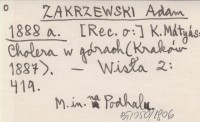 ZAKRZEWSKI Adam
1888 a. [Rec. o:] K. Mátyás:
Cholera w górach (Kraków
1887). — Wisła 2:
419.
M.in. na Podhalu
55/050/1806